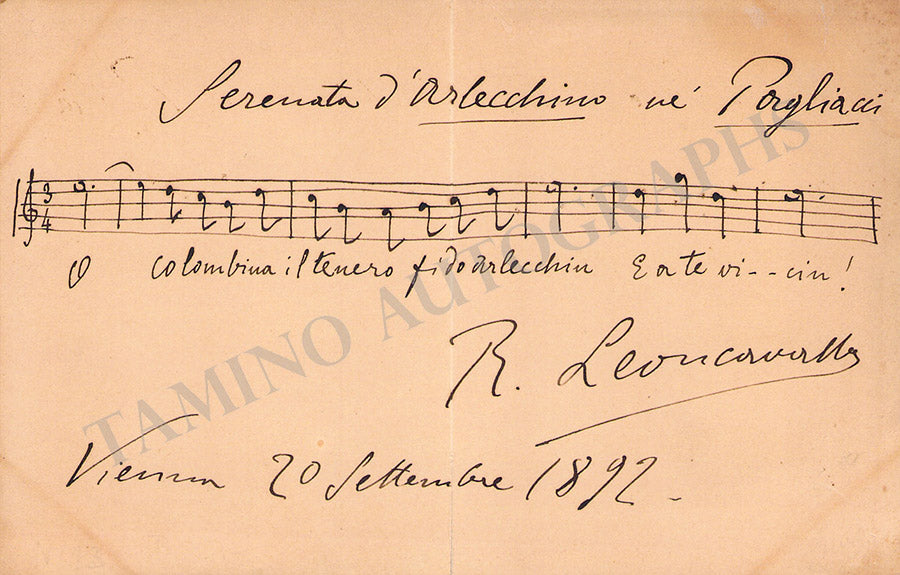 Serenata d'Arlecchino né Pagliacci
3 4
O Colombina il tenero fido Arlecchin E a te vi--cin!
R. Leoncavallo
Vienna 20 Settembre 1892_
TAMINO AUTOGRAPHS